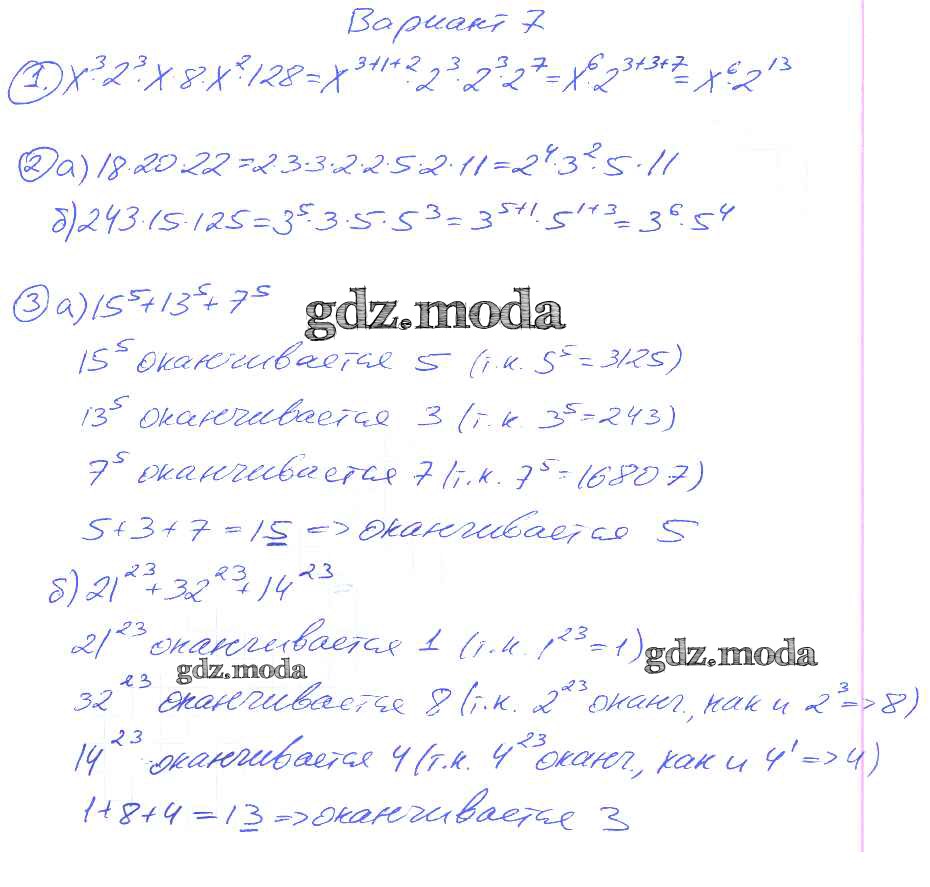 Вариант 7
1. x³·2³·x·8·x²·128=x³⁺¹⁺²·2³·2³·2⁷=x⁶·2³⁺³⁺⁷=x⁶·2¹³
2 а) 18·20·22=2·3·3·2·2·5·2·11=2⁴·3²·5·11
б) 243·15·125=3⁵·3·5·5³=3⁵⁺¹·5¹⁺³=3⁶·5⁴
3 а) 15⁵+13⁵+7⁵
gdz.moda
15⁵ оканчивается 5 (т.к. 5⁵=3125)
13⁵ оканчивается 3 (т.к. 3⁵=243)
7⁵ оканчивается 7 (т.к. 7⁵=16807)
5+3+7=15 => оканчивается 5
б) 21²³+32²³+14²³
21²³ оканчивается 1 (т.к. 1²³=1)
gdz.moda
gdz.moda
32²³ оканчивается 8 (т.к. 2²³ оканч., как и 2³=>8)
14²³ оканчивается 4 (т.к. 4²³ оканч., как и 4¹=>4)
1+8+4=13=>оканчивается 3